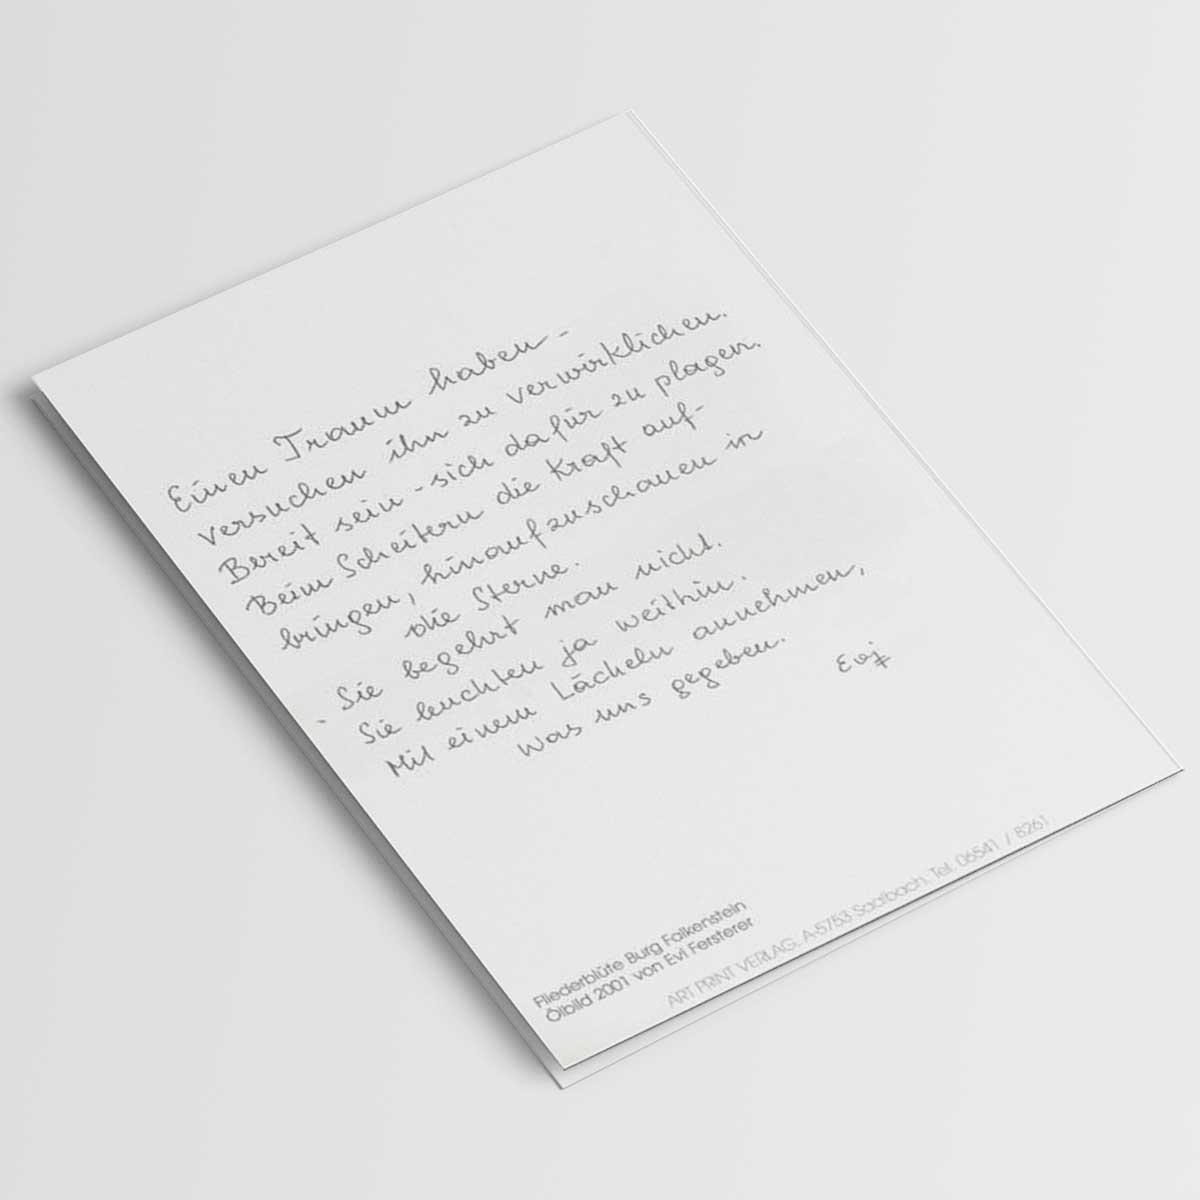 Einen Traum haben -
versuchen ihn zu verwirklichen.
Bereit sein - sich dafür zu plagen.
Beim Scheitern die Kraft auf-
bringen, hinaufzuschauen in
die Sterne.
Sie begehrt man nicht.
Sie leuchten ja weithin.
Mit einem Lächeln annehmen,
was uns gegeben.
Evi
Fliederblüte Burg Falkenstein
Ölbild 2001 von Evi Fersterer
ART PRINT VERLAG, A-5753 Saalbach, Tel. 06541 / 8261